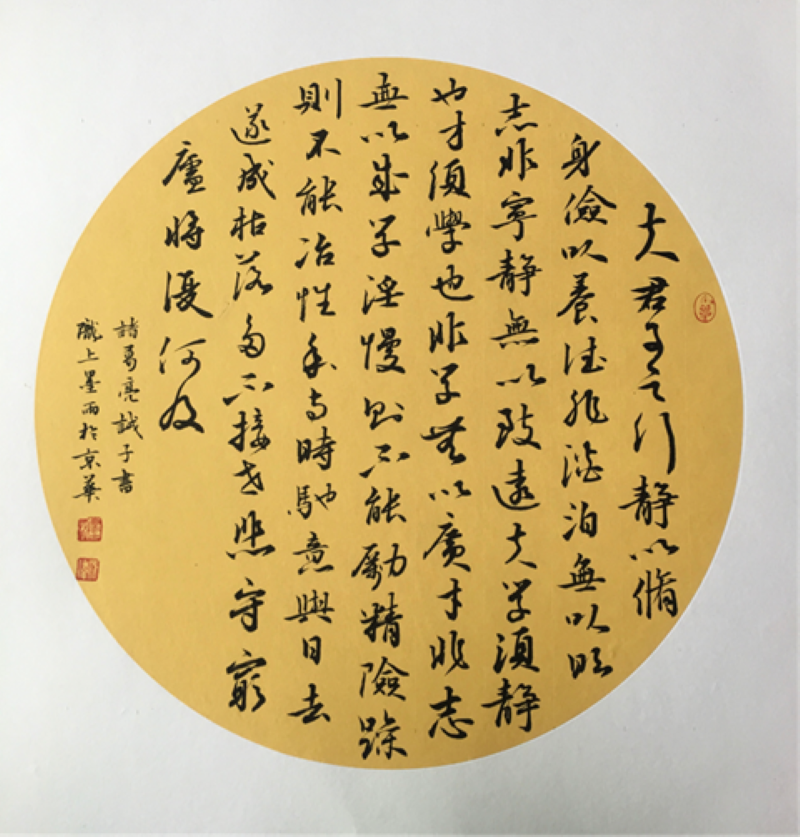 夫君子之行靜以脩
身儉以養德非澹泊無以明
志非寧靜無以致遠夫學須靜
也才須學也非學無以廣才非志
無以成学淫慢則不能勵精險躁
則不能冶性年与時馳意與日去
遂成枯落多不接世悲守窮
廬將復何及
諸葛亮誡子書
隴上墨雨於京華